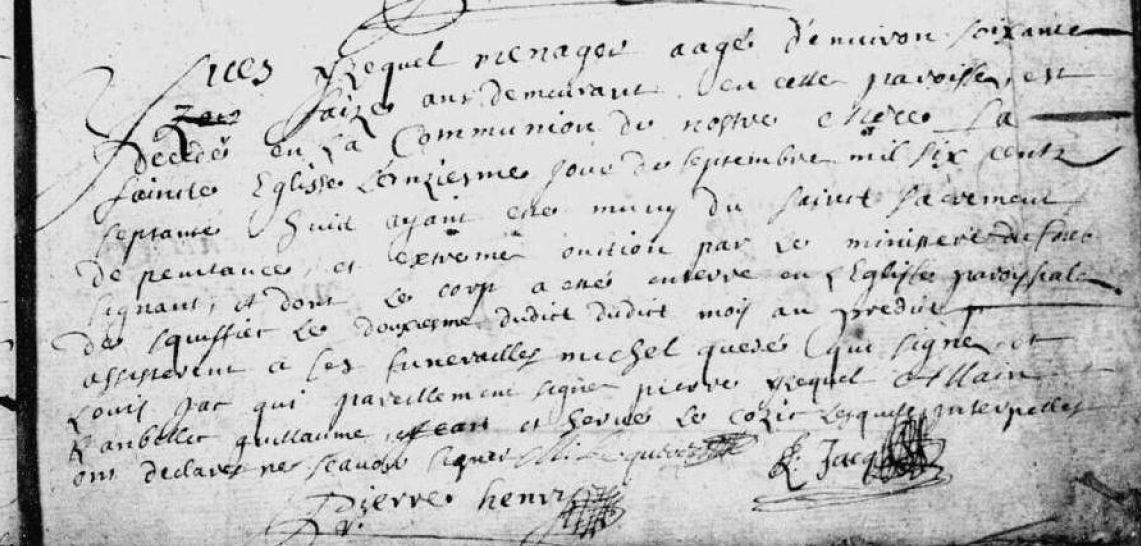 Yves Jezequel menager aagé d'enuiron soixante
saize ans demeurant en cette paroisse, est
decedé en La Communion de nostre mere La
saincte Eglisse L'onziesme Jour de septembre mil six centz
septante huit ayant esté muny du sainct sacrement
de penitance, et extreme onction par Le ministere du soub
signant, et dont Le corp a esté enterré en L'Eglisse paroissiale
de squiffiec Le douziesme dudict dudict mois au predit
assisterent a ses funerailles michel queré qui signe et
Louis Jac qui pareillement signe pierre Jezequel Allain
guillaume, Jean et hervé Le cozic Lesquels interpellés
ont declaré ne scauoir signer
L: Jacq
Pierre henry